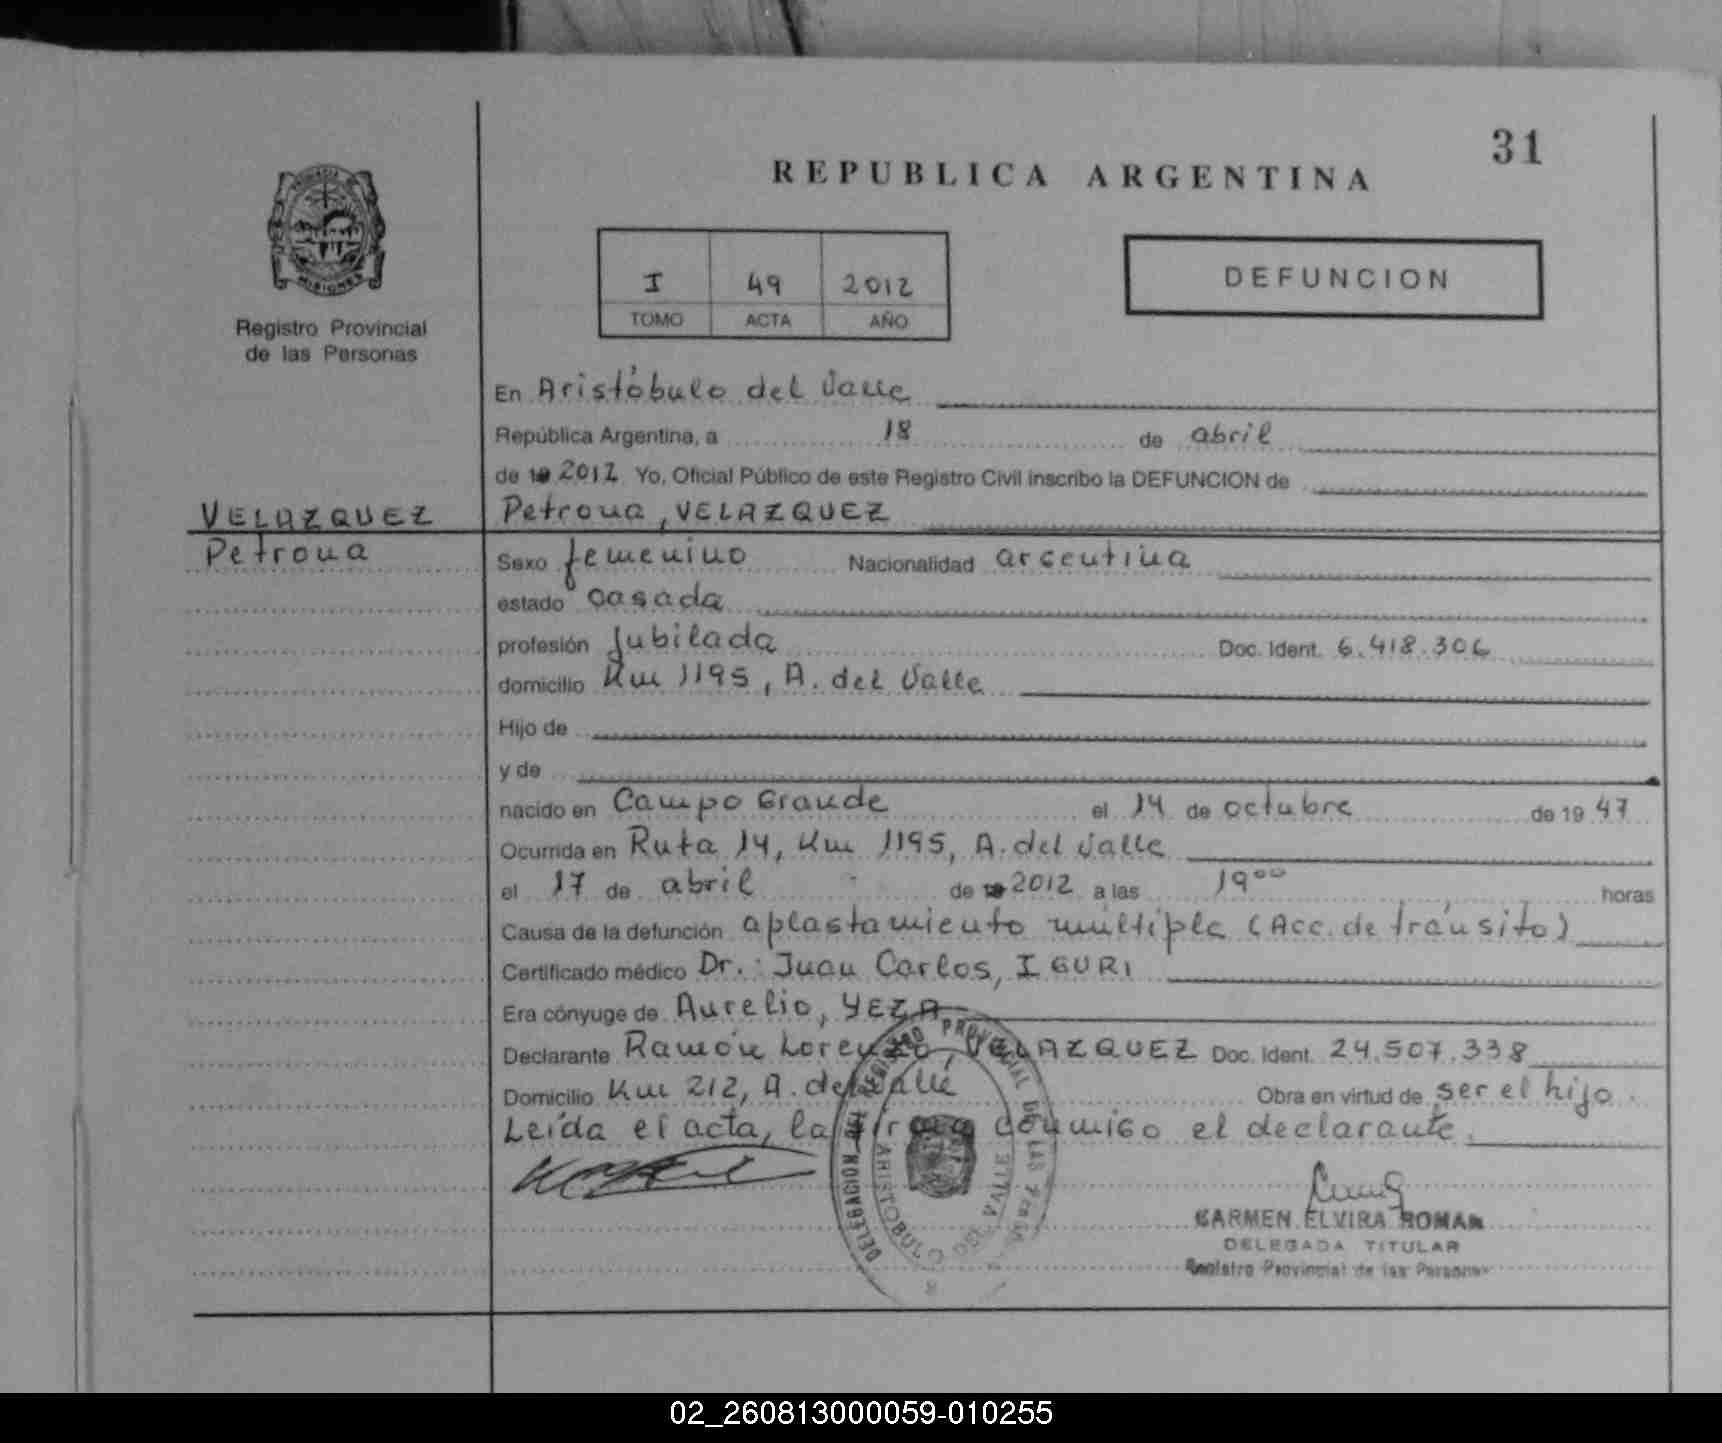 31
REPUBLICA ARGENTINA
I 49 2012
TOMO ACTA AÑO
DEFUNCION
MISIONES
Registro Provincial
de las Personas
En Aristóbulo del Valle
República Argentina, a 18 de abril
de 19 2012 Yo, Oficial Público de este Registro Civil inscribo la DEFUNCION de
VELAZQUEZ
Petrona
Petrona, VELAZQUEZ
Sexo femenino Nacionalidad argentina
estado casada
profesión Jubilada Doc. Ident. 6.418.306
domicilio Km 1195, A. del Valle
Hijo de
y de
nacido en Campo Grande el 14 de octubre de 19 47
Ocurrida en Ruta 14, Km 1195, A. del Valle
el 17 de abril de 19 2012 a las 19 00 horas
Causa de la defunción aplastamiento múltiple (Acc. de tránsito)
Certificado médico Dr.: Juan Carlos, IGURI
Era cónyuge de Aurelio, YEZA
Declarante Ramón Lorenzo, VELAZQUEZ Doc. Ident. 24.507.338
Domicilio Km 212, A. del Valle Obra en virtud de ser el hijo.
Leída el acta, la firma conmigo el declarante.
DELEGACION DEL REGISTRO PROVINCIAL DE LAS
ARISTOBULO DEL VALLE
CARMEN ELVIRA ROMAN
DELEGADA TITULAR
Registro Provincial de las Personas
02_260813000059-010255